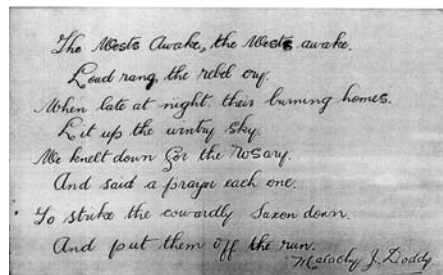 The Wests Awake, the Wests awake.
Loud rang, the rebel cry.
When late at night, their burning homes.
Lit up the wintry sky.
We knelt down for the rosary.
And said a prayer each one.
To strike the cowardly Saxon down.
And put them off the run.
Malachy J. Doddy